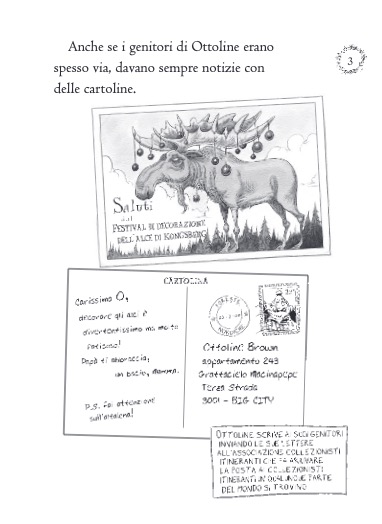 Anche se i genitori di Ottoline erano
spesso via, davano sempre notizie con
delle cartoline.
3
Saluti
dal
FESTIVAL DI DECORAZIONE
DELL'ALCE DI KONGSBERG
CARTOLINA
Carissima O,
decorare gli alci è
divertentissimo ma molto
faticoso!
Papà ti abbraccia,
un bacio, mamma.
P.S. fai attenzione
sull'altalena!
Ottoline Brown
appartamento 243
Grattacielo Macinapepe
Terza Strada
3001 - BIG CITY
OTTOLINE SCRIVE AI SUOI GENITORI
INVIANDO LE SUE LETTERE
ALL'ASSOCIAZIONE COLLEZIONISTI
ITINERANTI CHE FA ARRIVARE
LA POSTA AI COLLEZIONISTI
ITINERANTI IN QUALUNQUE PARTE
DEL MONDO SI TROVINO